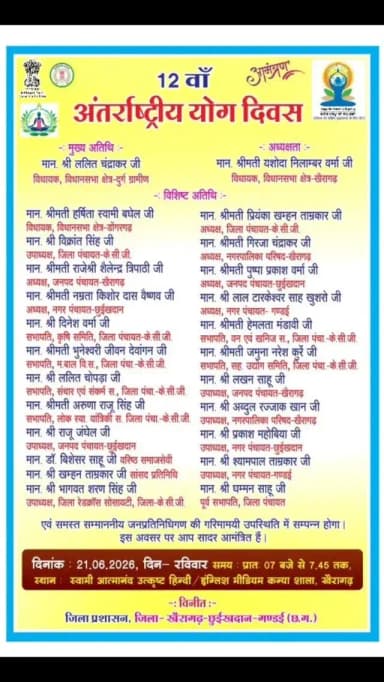 आमंत्रण
12 वाँ
अंतर्राष्ट्रीय योग दिवस
-: मुख्य अतिथि :-
मान. श्री ललित चंद्राकर जी
विधायक, विधानसभा क्षेत्र-दुर्ग ग्रामीण
-: अध्यक्षता :-
मान. श्रीमती यशोदा निलाम्बर वर्मा जी
विधायक, विधानसभा क्षेत्र-खैरागढ़
-: विशिष्ट अतिथि :-
मान. श्रीमती हर्षिता स्वामी बघेल जी
विधायक, विधानसभा क्षेत्र-डोंगरगढ़
मान. श्री विक्रांत सिंह जी
उपाध्यक्ष, जिला पंचायत-के.सी.जी.
मान. श्रीमती राजेश्री शैलेन्द्र त्रिपाठी जी
अध्यक्ष, जनपद पंचायत-खैरागढ़
मान. श्रीमती नम्रता किशोर दास वैष्णव जी
अध्यक्ष, नगर पंचायत-छुईखदान
मान. श्री दिनेश वर्मा जी
सभापति, कृषि समिति, जिला पंचायत-के.सी.जी.
मान. श्रीमती भुनेश्वरी जीवन देवांगन जी
सभापति, म.बाल वि.स., जिला पंचा.-के.सी.जी.
मान. श्री ललित चोपड़ा जी
सभापति, संचार एवं संकर्म स., जिला पंचा.-के.सी.जी.
मान. श्रीमती अरुणा राजू सिंह जी
सभापति, लोक स्वा. यांत्रिकी स. जिला पंचा.-के.सी.जी.
मान. श्री राजू जंघेल जी
उपाध्यक्ष, जनपद पंचायत-छुईखदान
मान. डॉ. बिशेसर साहू जी वरिष्ठ समाजसेवी
मान. श्री खम्हन ताम्रकार जी सांसद प्रतिनिधि
मान. श्री भागवत शरण सिंह जी
उपाध्यक्ष, जिला रेडक्रॉस सोसायटी, जिला-के.सी.जी.
मान. श्रीमती प्रियंका खम्हन ताम्रकार जी
अध्यक्ष, जिला पंचायत-के.सी.जी.
मान. श्रीमती गिरजा चंद्राकर जी
अध्यक्ष, नगरपालिका परिषद-खैरागढ़
मान. श्रीमती पुष्पा प्रकाश वर्मा जी
अध्यक्ष, जनपद पंचायत-छुईखदान
मान. श्री लाल टारकेश्वर साह खुशरो जी
अध्यक्ष, नगर पंचायत- गण्डई
मान. श्रीमती हेमलता मंडावी जी
सभापति, वन एवं खनिज स., जिला पंचा.-के.सी.जी.
मान. श्रीमती जमुना नरेश कुर्रे जी
सभापति, सह. उद्योग समिति, जिला पंचा.-के.सी.जी.
मान. श्री लखन साहू जी
उपाध्यक्ष, जनपद पंचायत-खैरागढ़
मान. श्री अब्दुल रज्जाक खान जी
उपाध्यक्ष, नगरपालिका परिषद-खैरागढ़
मान. श्री प्रकाश महोबिया जी
उपाध्यक्ष, नगर पंचायत-छुईखदान
मान. श्री श्यामपाल ताम्रकार जी
उपाध्यक्ष, नगर पंचायत-गण्डई
मान. श्री घम्मन साहू जी
पूर्व सभापति, जिला पंचायत
एवं समस्त सम्माननीय जनप्रतिनिधिगण की गरिमामयी उपस्थिति में सम्पन्न होगा।
इस अवसर पर आप सादर आमंत्रित हैं।
दिनांक : 21.06.2026, दिन- रविवार समय : प्रातः 07 बजे से 7.45 तक,
स्थान : स्वामी आत्मानंद उत्कृष्ट हिन्दी/इंग्लिश मीडियम कन्या शाला, खैरागढ़
-: विनीत :-
जिला प्रशासन, जिला- खैरागढ़-छुईखदान-गण्डई (छ.ग.)